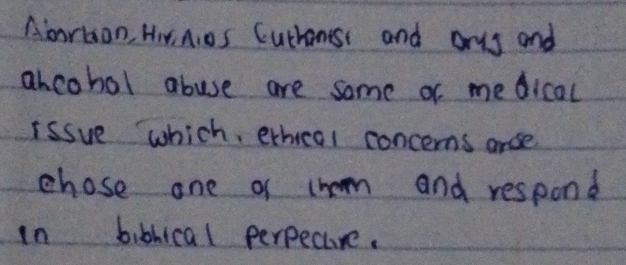 Abortion, Hiv, Aids Euthanisi and drug and
ahcohol abuse are some of medical
issue which, ethical concerns arise
chose one of them and respond
in biblical perpective.